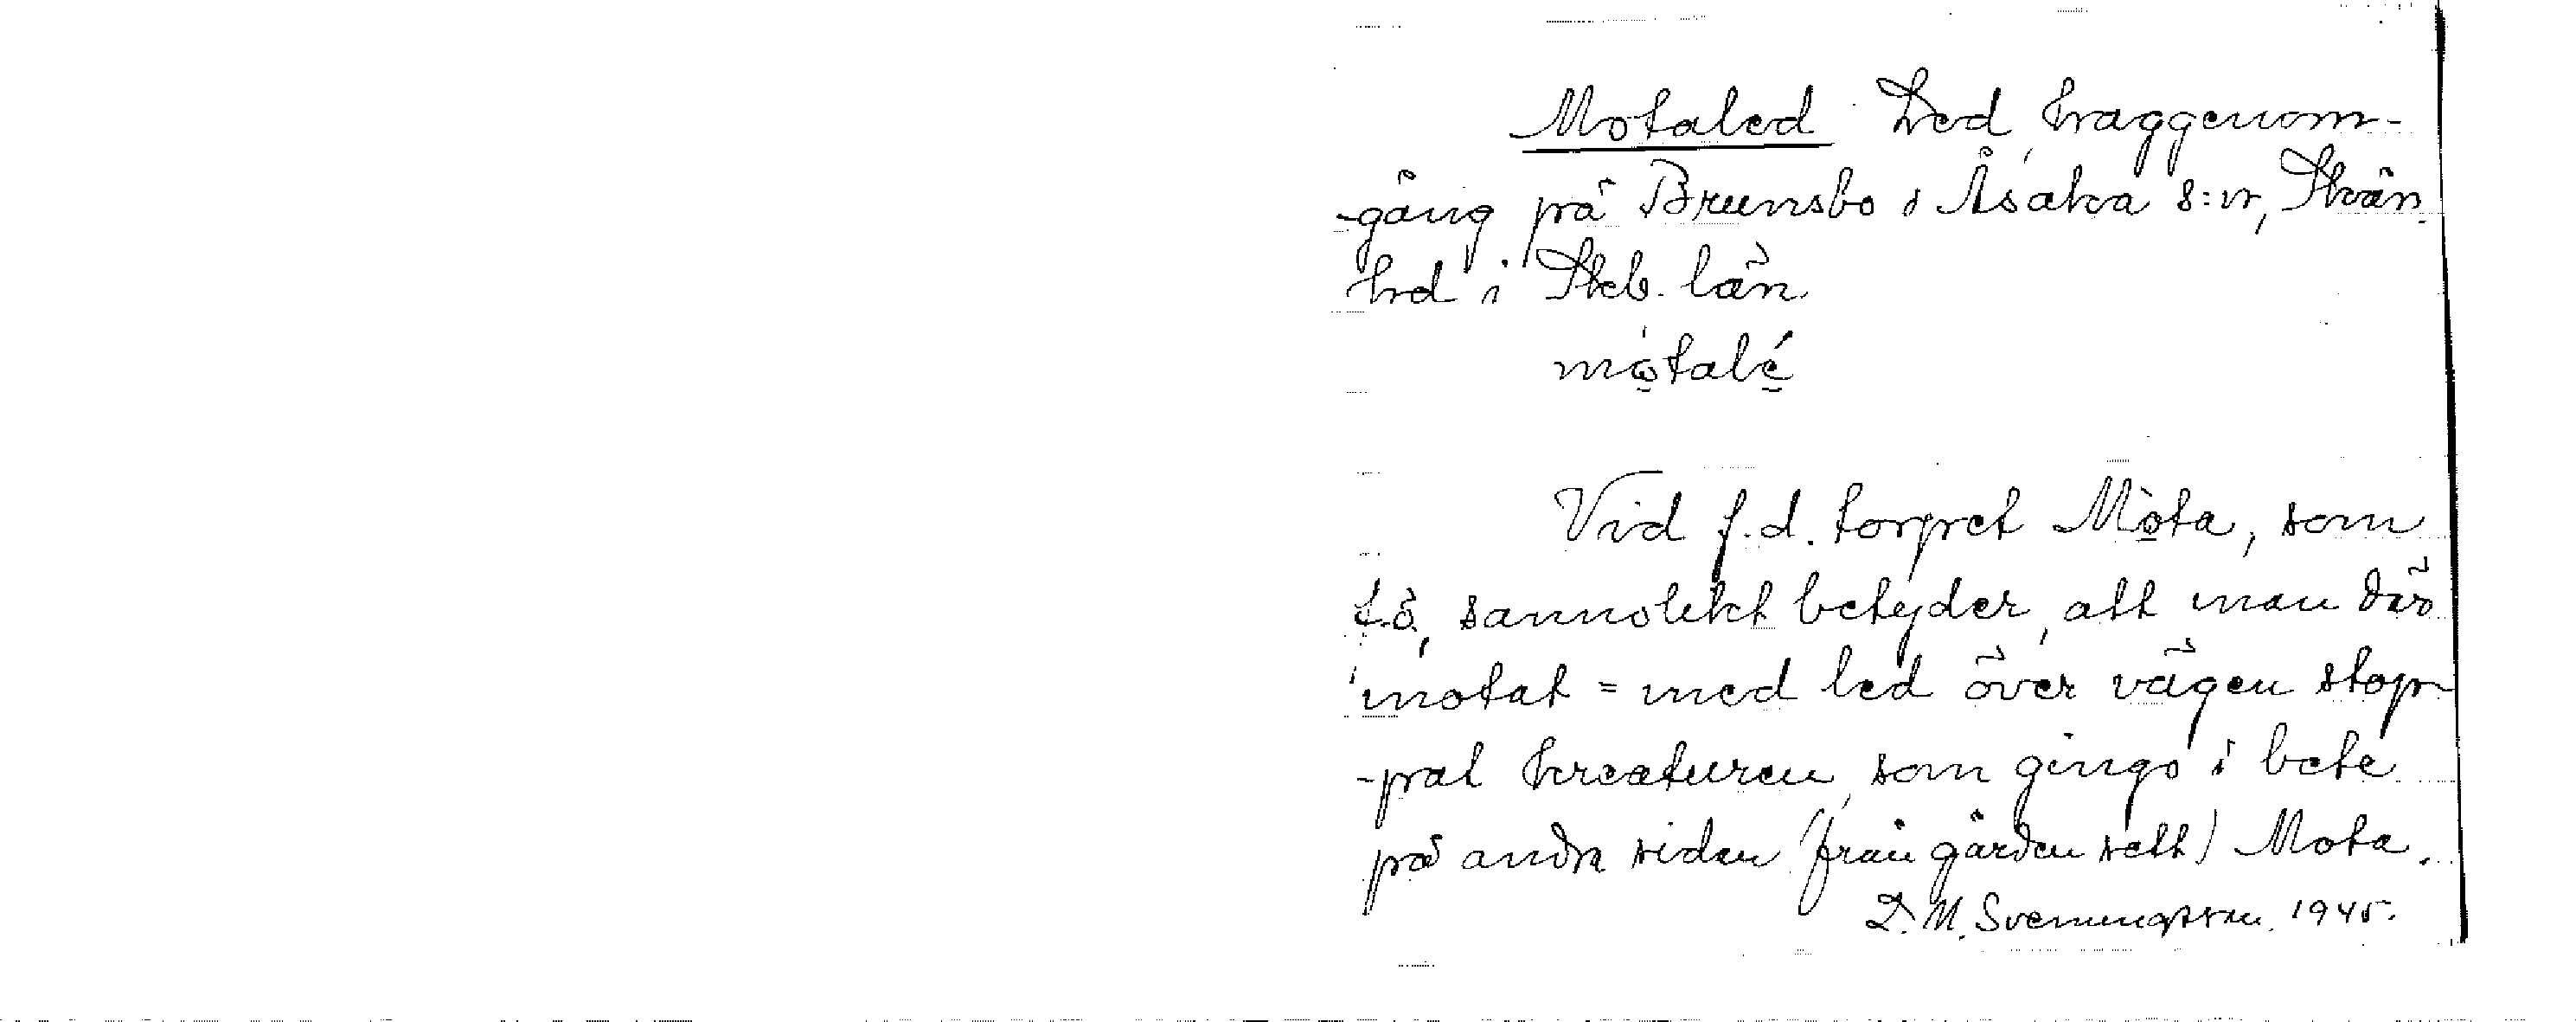 Motaled Led, haggenom-
-gång på Brunsbo i Åsaka s:n, Skån
hd i Skb. län
mo̱talé̱
Vid f.d. torpet Mo̱ta, som
t.o, sannolikt betyder, att man där
motat = med led över vägen stop-
-pat kreaturen, som gingo i bete
på andra sidan (från gården sett) Mota.
D. M. Svenningsson. 1945.